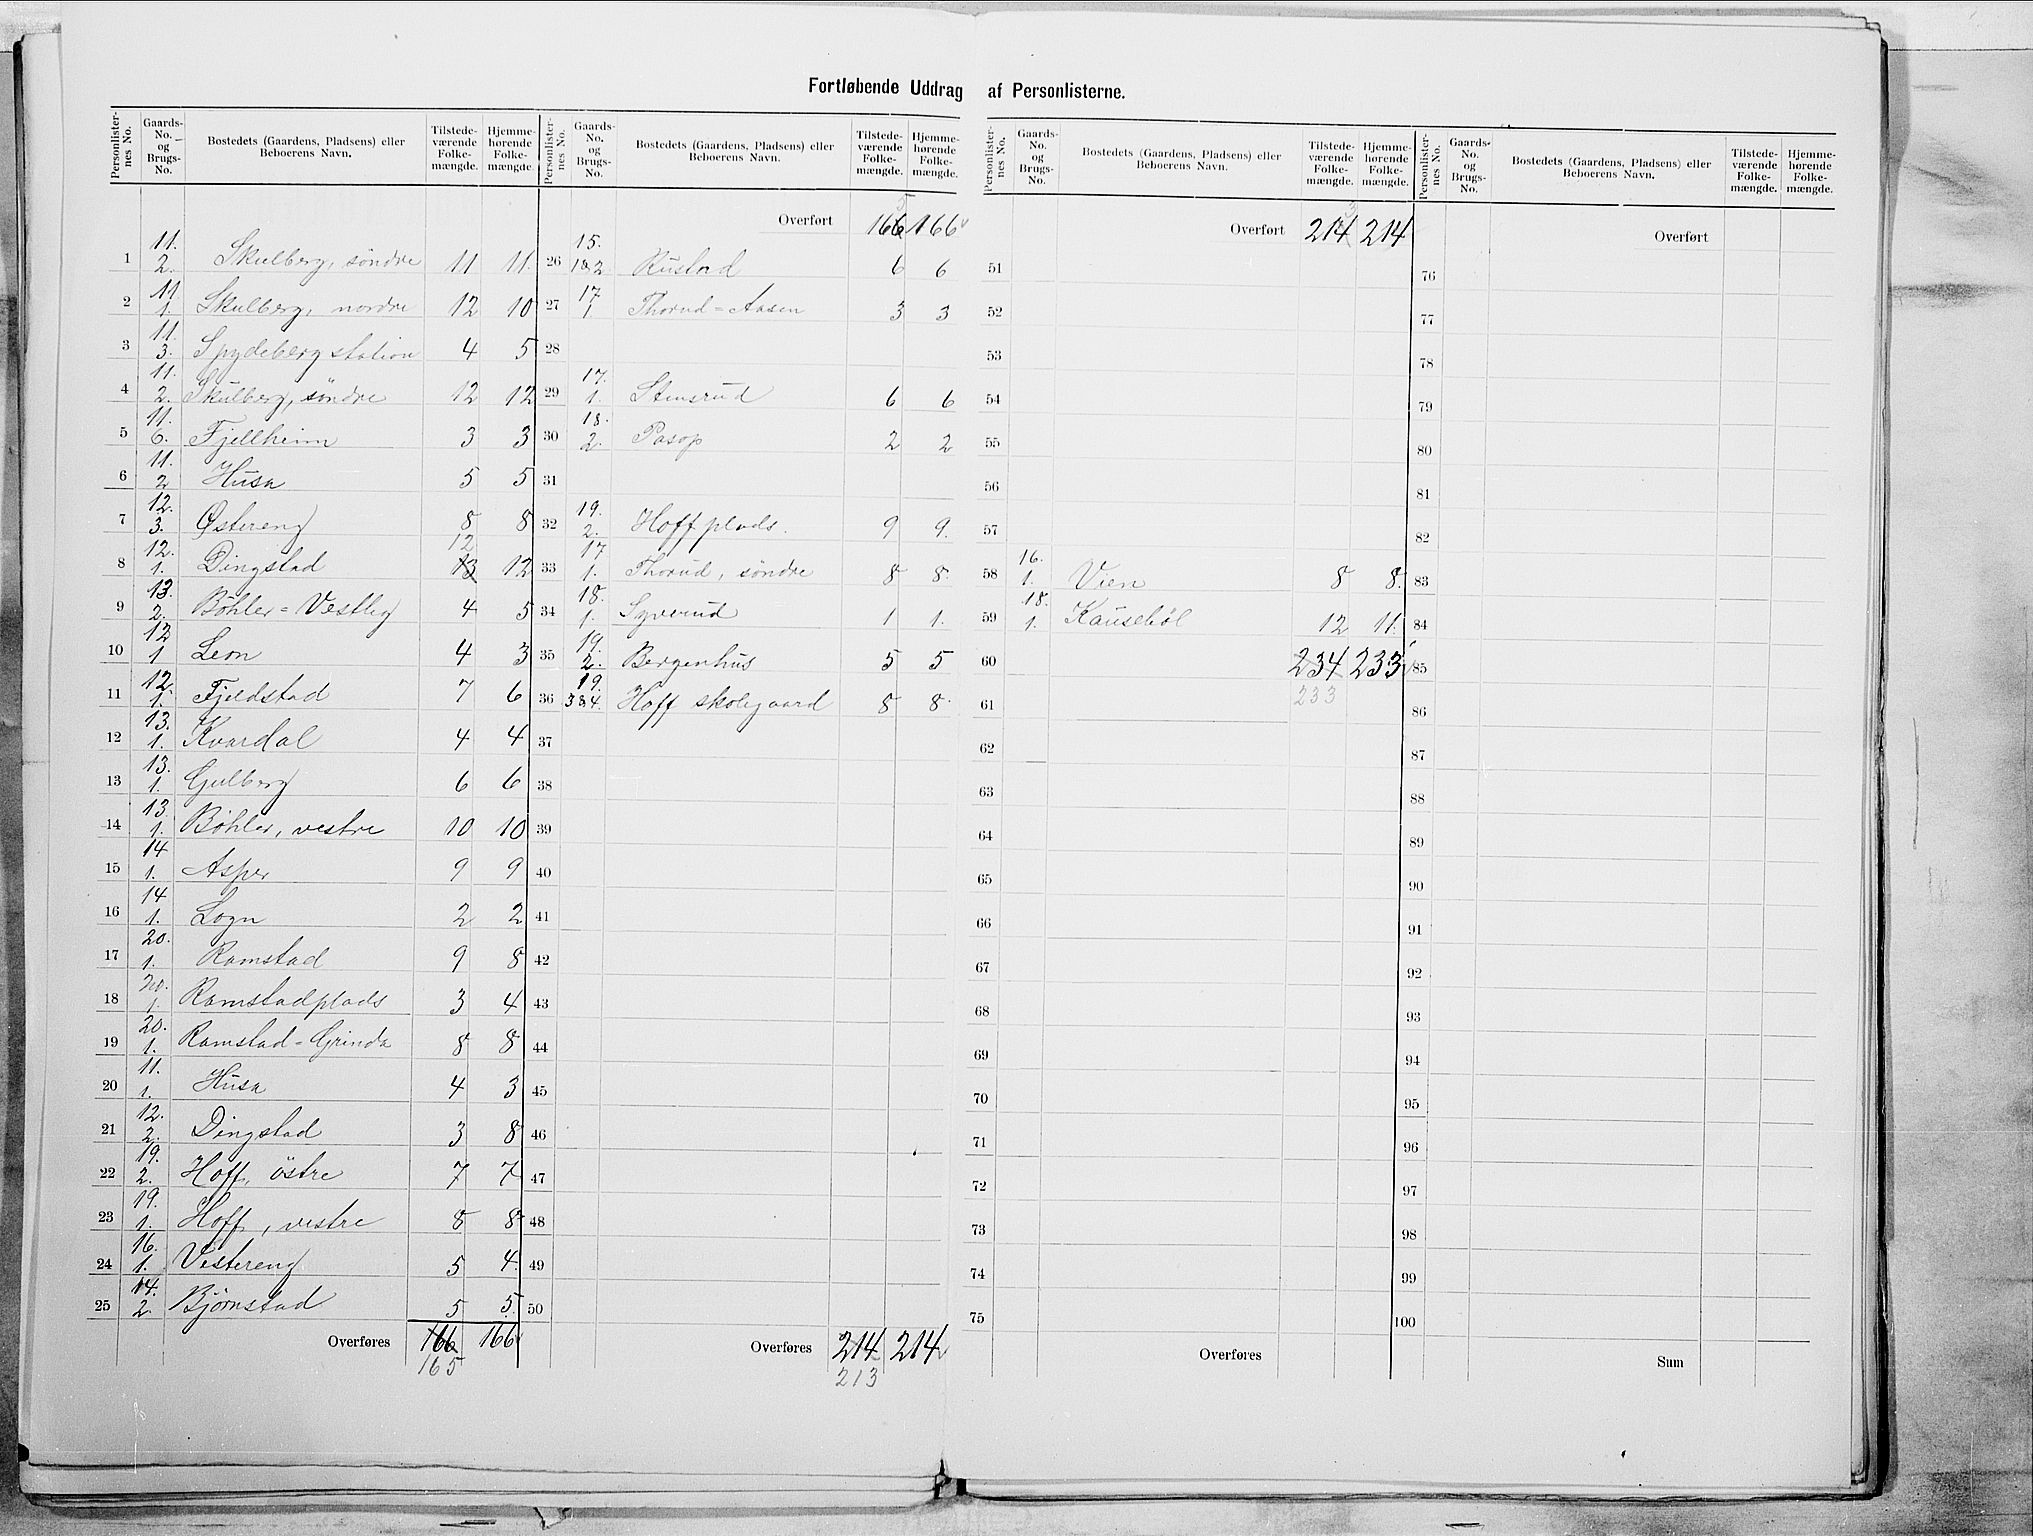 Fortløbende Uddrag af Personlisterne.
Personlisternes No. Gaards-No. og Brugs-No. Bostedets (Gaardens, Pladsens) eller Beboerens Navn. Tilstedeværende Folkemængde. Hjemmehørende Folkemængde.
1 11. 2. Skulberg, søndre 11 11.
2 11 1. Skulberg, nordre 12 10
3 11. 3. Spydeberg station 4 5
4 11. 2. Skulberg, søndre 12 12
5 11. 6. Fjellheim 3 3
6 11. 2 Husa 5 5
7 12. 3. Østereng 8 8
8 12. 1. Dingstad 13 12 12
9 13. 2. Bøhler=Vestby 4 5
10 12 1 Leon 4 3
11 12. 1. Fjeldstad 7 6
12 13. 1. Kvardal 4 4
13 13. 1. Gulberg 6 6
14 13. 1. Bøhler, vestre 10 10
15 14 1. Asper 9 9
16 14 1. Logn 2 2
17 20. 1. Ramstad 9 8
18 20. 1. Ramstadplads 3 4
19 20. 1. Ramstad=Grinda 8 8
20 11. 1. Husa 4 3
21 12. 2. Dingstad 3 8
22 19. 2. Hoff, östre 7 7
23 19. 1. Hoff, vestre 8 8
24 16. 1. Vestereng 5 4.
25 14. 2. Bjørnstad 5 5.
Overføres 166 166
165
Personlisternes No. Gaards-No. og Brugs-No. Bostedets (Gaardens, Pladsens) eller Beboerens Navn. Tilstedeværende Folkemængde. Hjemmehørende Folkemængde.
Overført 166 166
5
26 15. 1&2 Rustad 6 6
27 17 1. Thorud=Aasen 3 3
28
29 17. 1. Stensrud 6 6
30 18. 2. Pasop 2 2
31
32 19. 2. Hoff plads. 9 9.
33 17 1. Thorud, söndre 8 8.
34 18. 1. Syverud 1 1.
35 19. 2. Bergenhus 5 5
36 19. 3&4. Hoff skolegaard 8 8.
37
38
39
40
41
42
43
44
45
46
47
48
49
50
Overføres 214 214
213
Personlisternes No. Gaards-No. og Brugs-No. Bostedets (Gaardens, Pladsens) eller Beboerens Navn. Tilstedeværende Folkemængde. Hjemmehørende Folkemængde.
Overført 214 214
3
51
52
53
54
55
56
57
58 16. 1. Vien 8 8.
59 18. 1. 12 11.
60 234 233
61 233
62
63
64
65
66
67
68
69
70
71
72
73
74
75
Overføres
Personlisternes No. Gaards-No. og Brugs-No. Bostedets (Gaardens, Pladsens) eller Beboerens Navn. Tilstedeværende Folkemængde. Hjemmehørende Folkemængde.
Overført
76
77
78
79
80
81
82
83
84
85
86
87
88
89
90
91
92
93
94
95
96
97
98
99
100
Sum